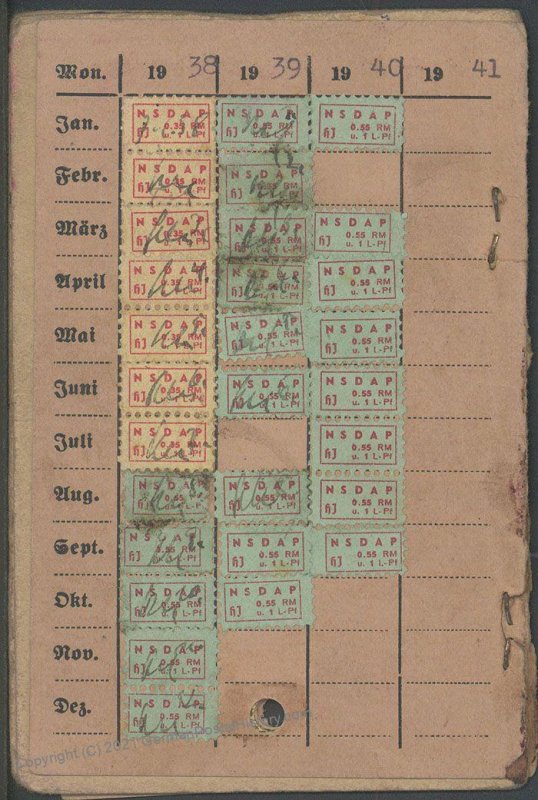 Mon. 19 38 19 39 19 40 19 41
Jan. NSDAP NSDAP NSDAP
0.35 RM 0.55 RM
HJ u. 1 L-Pf HJ HJ u. 1 L-Pf
Febr. NSDAP
0.35 RM
HJ u. 1 L-Pf HJ
März NSDAP NSDAP NSDAP
0.35 RM 0.55 RM 0.55 RM
HJ u. 1 L-Pf HJ u. 1 L-Pf HJ u. 1 L-Pf
April NSDAP NSDAP NSDAP
0.35 RM 0.55 RM 0.55 RM
HJ u. 1 L-Pf HJ u. 1 L-Pf HJ u. 1 L-Pf
Mai NSDAP NSDAP NSDAP
0.35 RM 0.55 RM 0.55 RM
HJ u. 1 L-Pf HJ u. 1 L-Pf HJ u. 1 L-Pf
Juni NSDAP NSDAP NSDAP
0.35 RM 0.55 RM 0.55 RM
HJ u. 1 L-Pf HJ u. 1 L-Pf HJ u. 1 L-Pf
Juli NSDAP NSDAP
0.35 RM 0.55 RM
HJ u. 1 L-Pf HJ u. 1 L-Pf
Aug. NSDAP NSDAP NSDAP
0.55 RM 0.55 RM 0.55 RM
HJ u. 1 L-Pf HJ u. 1 L-Pf HJ u. 1 L-Pf
Sept. NSDAP NSDAP NSDAP
0.55 RM 0.55 RM 0.55 RM
HJ u. 1 L-Pf HJ u. 1 L-Pf HJ u. 1 L-Pf
Okt. NSDAP NSDAP
0.55 RM 0.55 RM
HJ u. 1 L-Pf HJ u. 1 L-Pf
Nov. NSDAP
0.55 RM
HJ u. 1 L-Pf
Dez. NSDAP
0.55 RM
HJ u. 1 L-Pf
Copyright (C) 2021 Germanpostalhistory.com